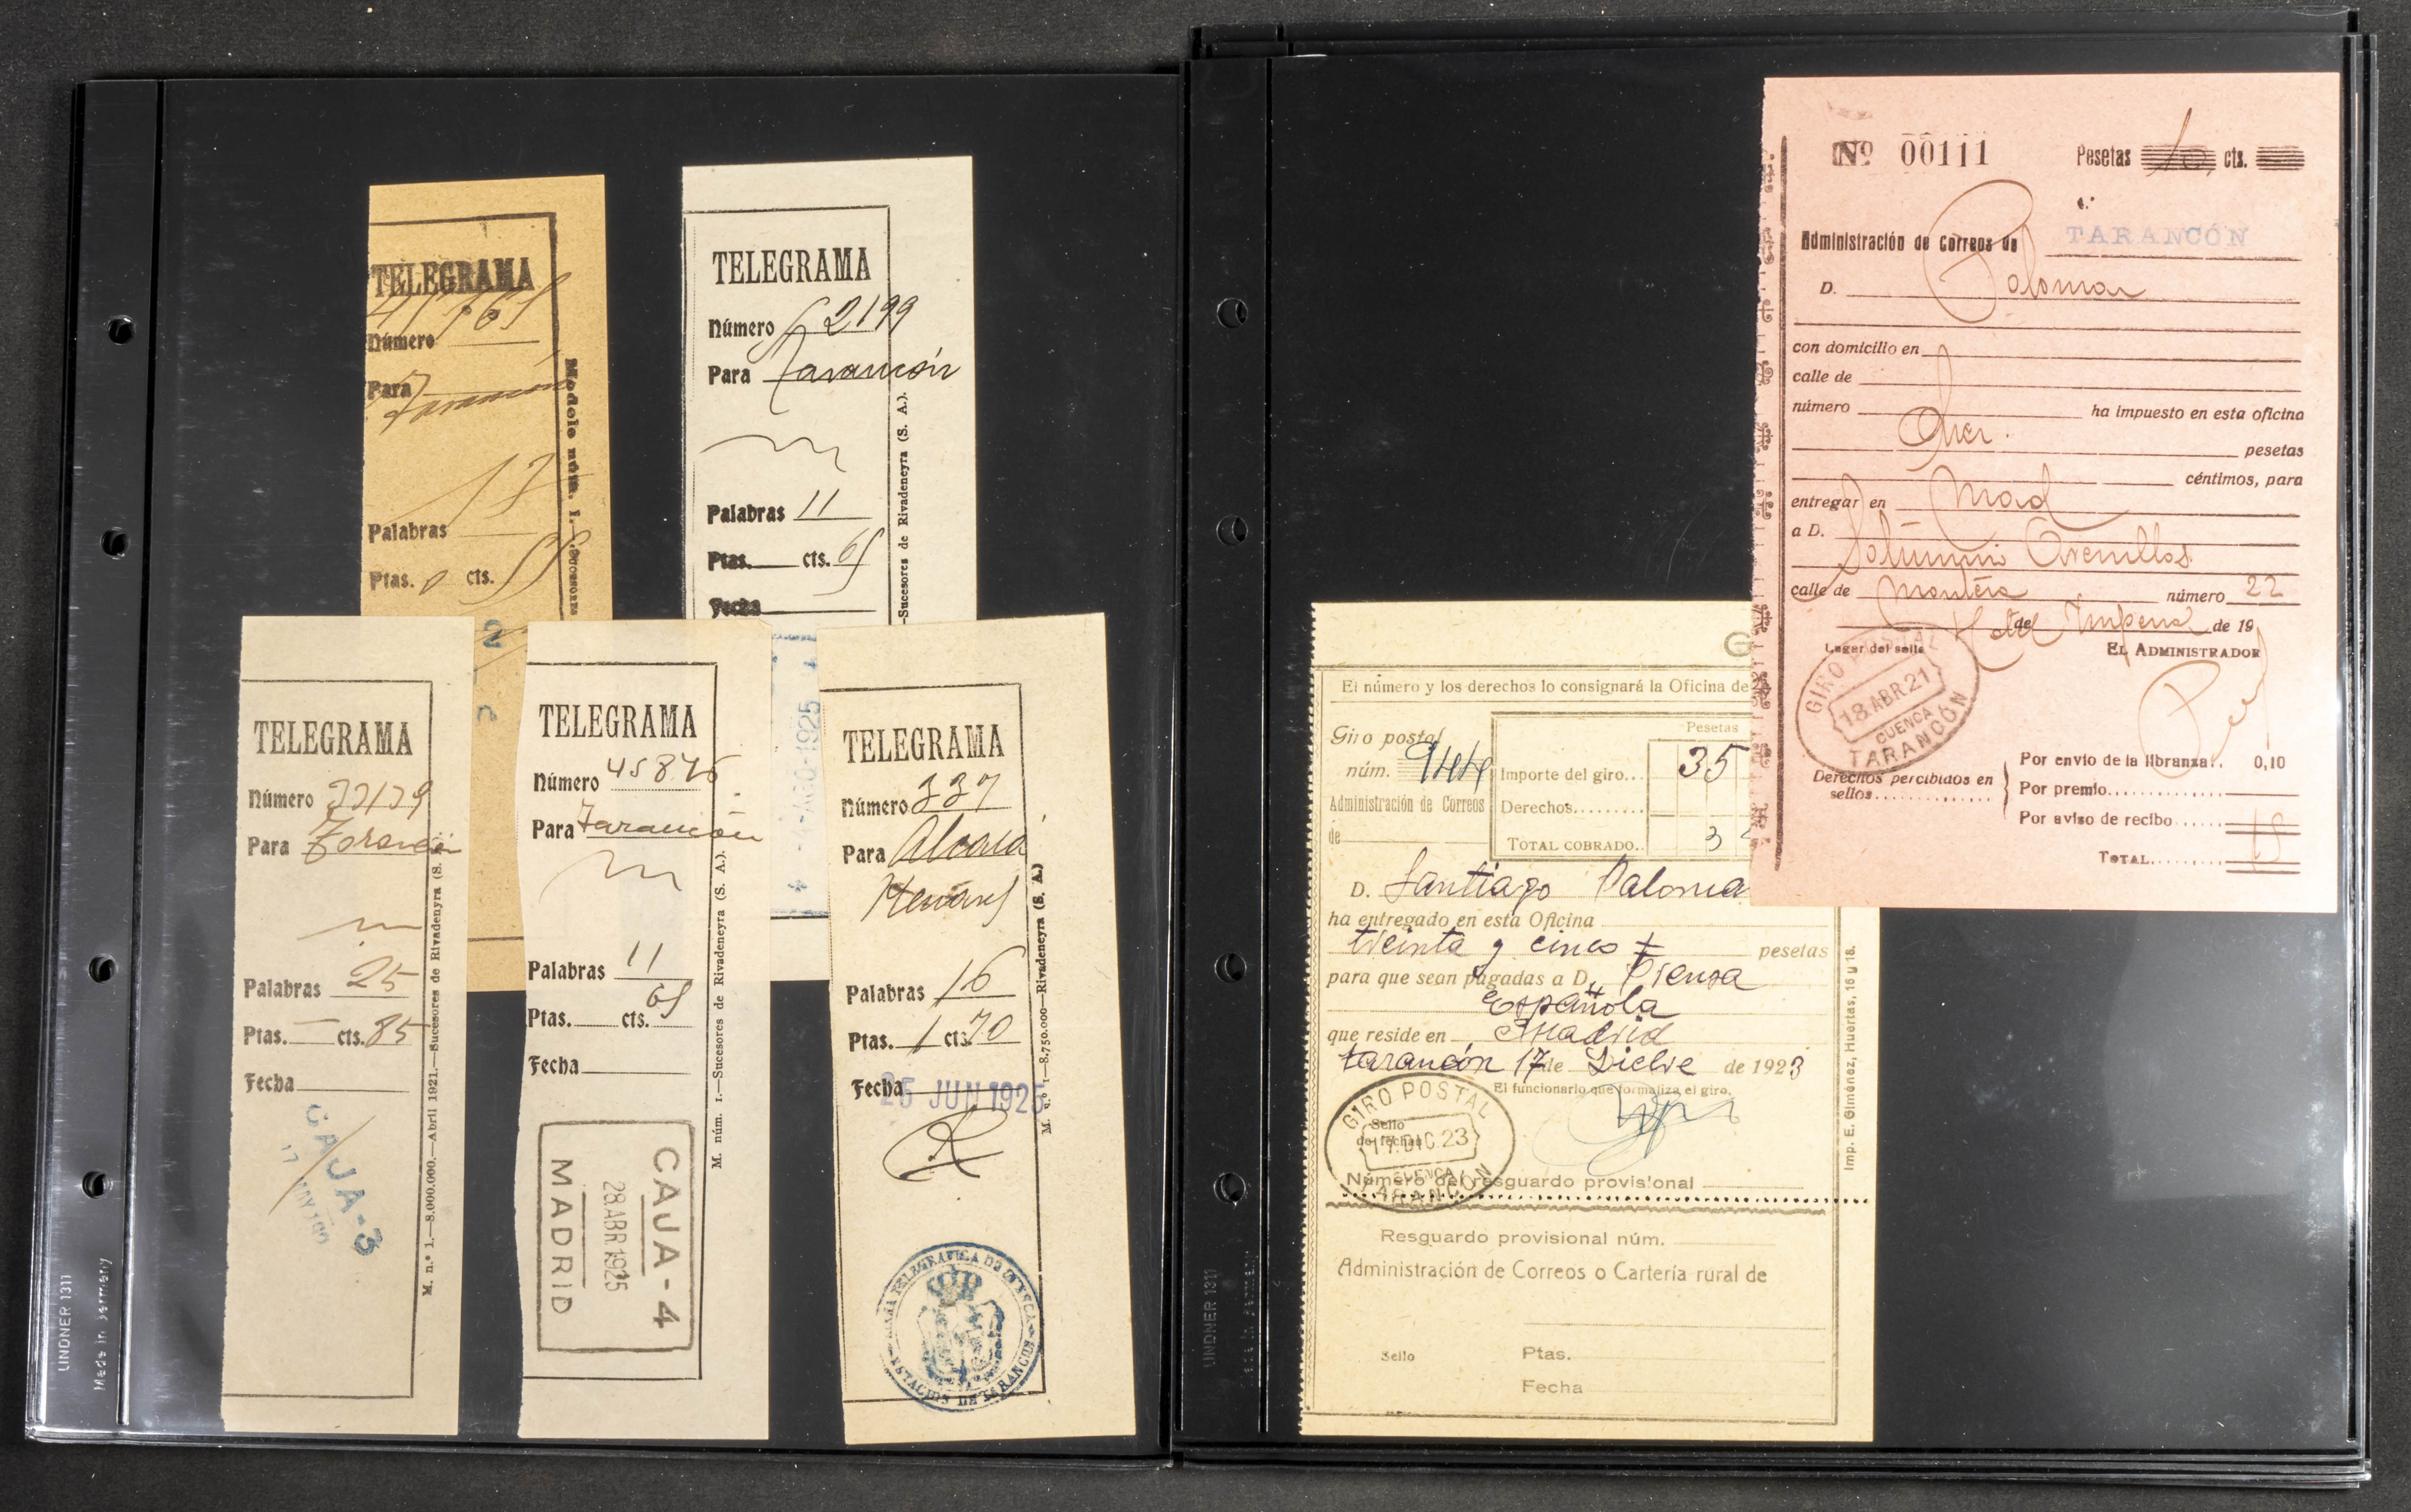 TELEGRAMA
Número
Para
Palabras 17
Ptas. 0 cts. 55
Modelo núm. 1.—Sucesores
TELEGRAMA
Número 62199
Para Tarancón
Palabras 11
Ptas. cts. 65
Fecha
-Sucesores de Rivadeneyra (S. A.).
4-AGO-1925
TELEGRAMA
Número
Para Tarancón
Palabras 25
Ptas. — cts. 85
Fecha
CAJA-3
M. n.º 1.—8.000.000.—Abril 1921.—Sucesores de Rivadenyra (S. A.).
TELEGRAMA
Número 45876
Para Tarancón
Palabras 11
Ptas. cts. 65
Fecha
CAJA - 4
28 ABR 1925
MADRID
M. núm. 1.—Sucesores de Rivadeneyra (S. A.).
TELEGRAMA
Número 337
Para Alcalá
Henares
Palabras 16
Ptas. 1 cts. 70
Fecha 25 JUN 1925
M. n.º 1.—8.750.000—Rivadeneyra (S. A.)
ESTACIÓN DE TARANCÓN
LINDNER 1311
Made in Germany
LINDNER 1311
Made in Germany
G
El número y los derechos lo consignará la Oficina de
Giro postal
núm.
Administración de Correos
de
Pesetas
Importe del giro... 35
Derechos.........
TOTAL COBRADO.. 3
D. Santiago Paloma
ha entregado en esta Oficina
treinta y cinco pesetas
para que sean pagadas a D. Prensa
Española
que reside en Madrid
tarancón 17 de Dicbre de 1923
El funcionario que formaliza el giro,
Sello
de fechas
GIRO POSTAL
17.DIC.23
CUENCA
TARANCÓN
Número del resguardo provisional
Resguardo provisional núm.
Administración de Correos o Cartería rural de
Sello
Ptas.
Fecha
Imp. E. Giménez, Huertas, 16 y 18.
Nº 00111
Pesetas 10 cts.
Administración de Correos de TARANCÓN
D. Palomar
con domicilio en
calle de
número ha impuesto en esta oficina
Diez pesetas
céntimos, para
entregar en Mad
a D.
calle de Montera número 22
Hotel de Imperial de 19
Lugar del sello
EL ADMINISTRADOR
GIRO POSTAL
18.ABR.21
CUENCA
TARANCÓN
Derechos percibidos en
sellos
Por envío de la libranza.. 0,10
Por premio
Por aviso de recibo
TOTAL 15